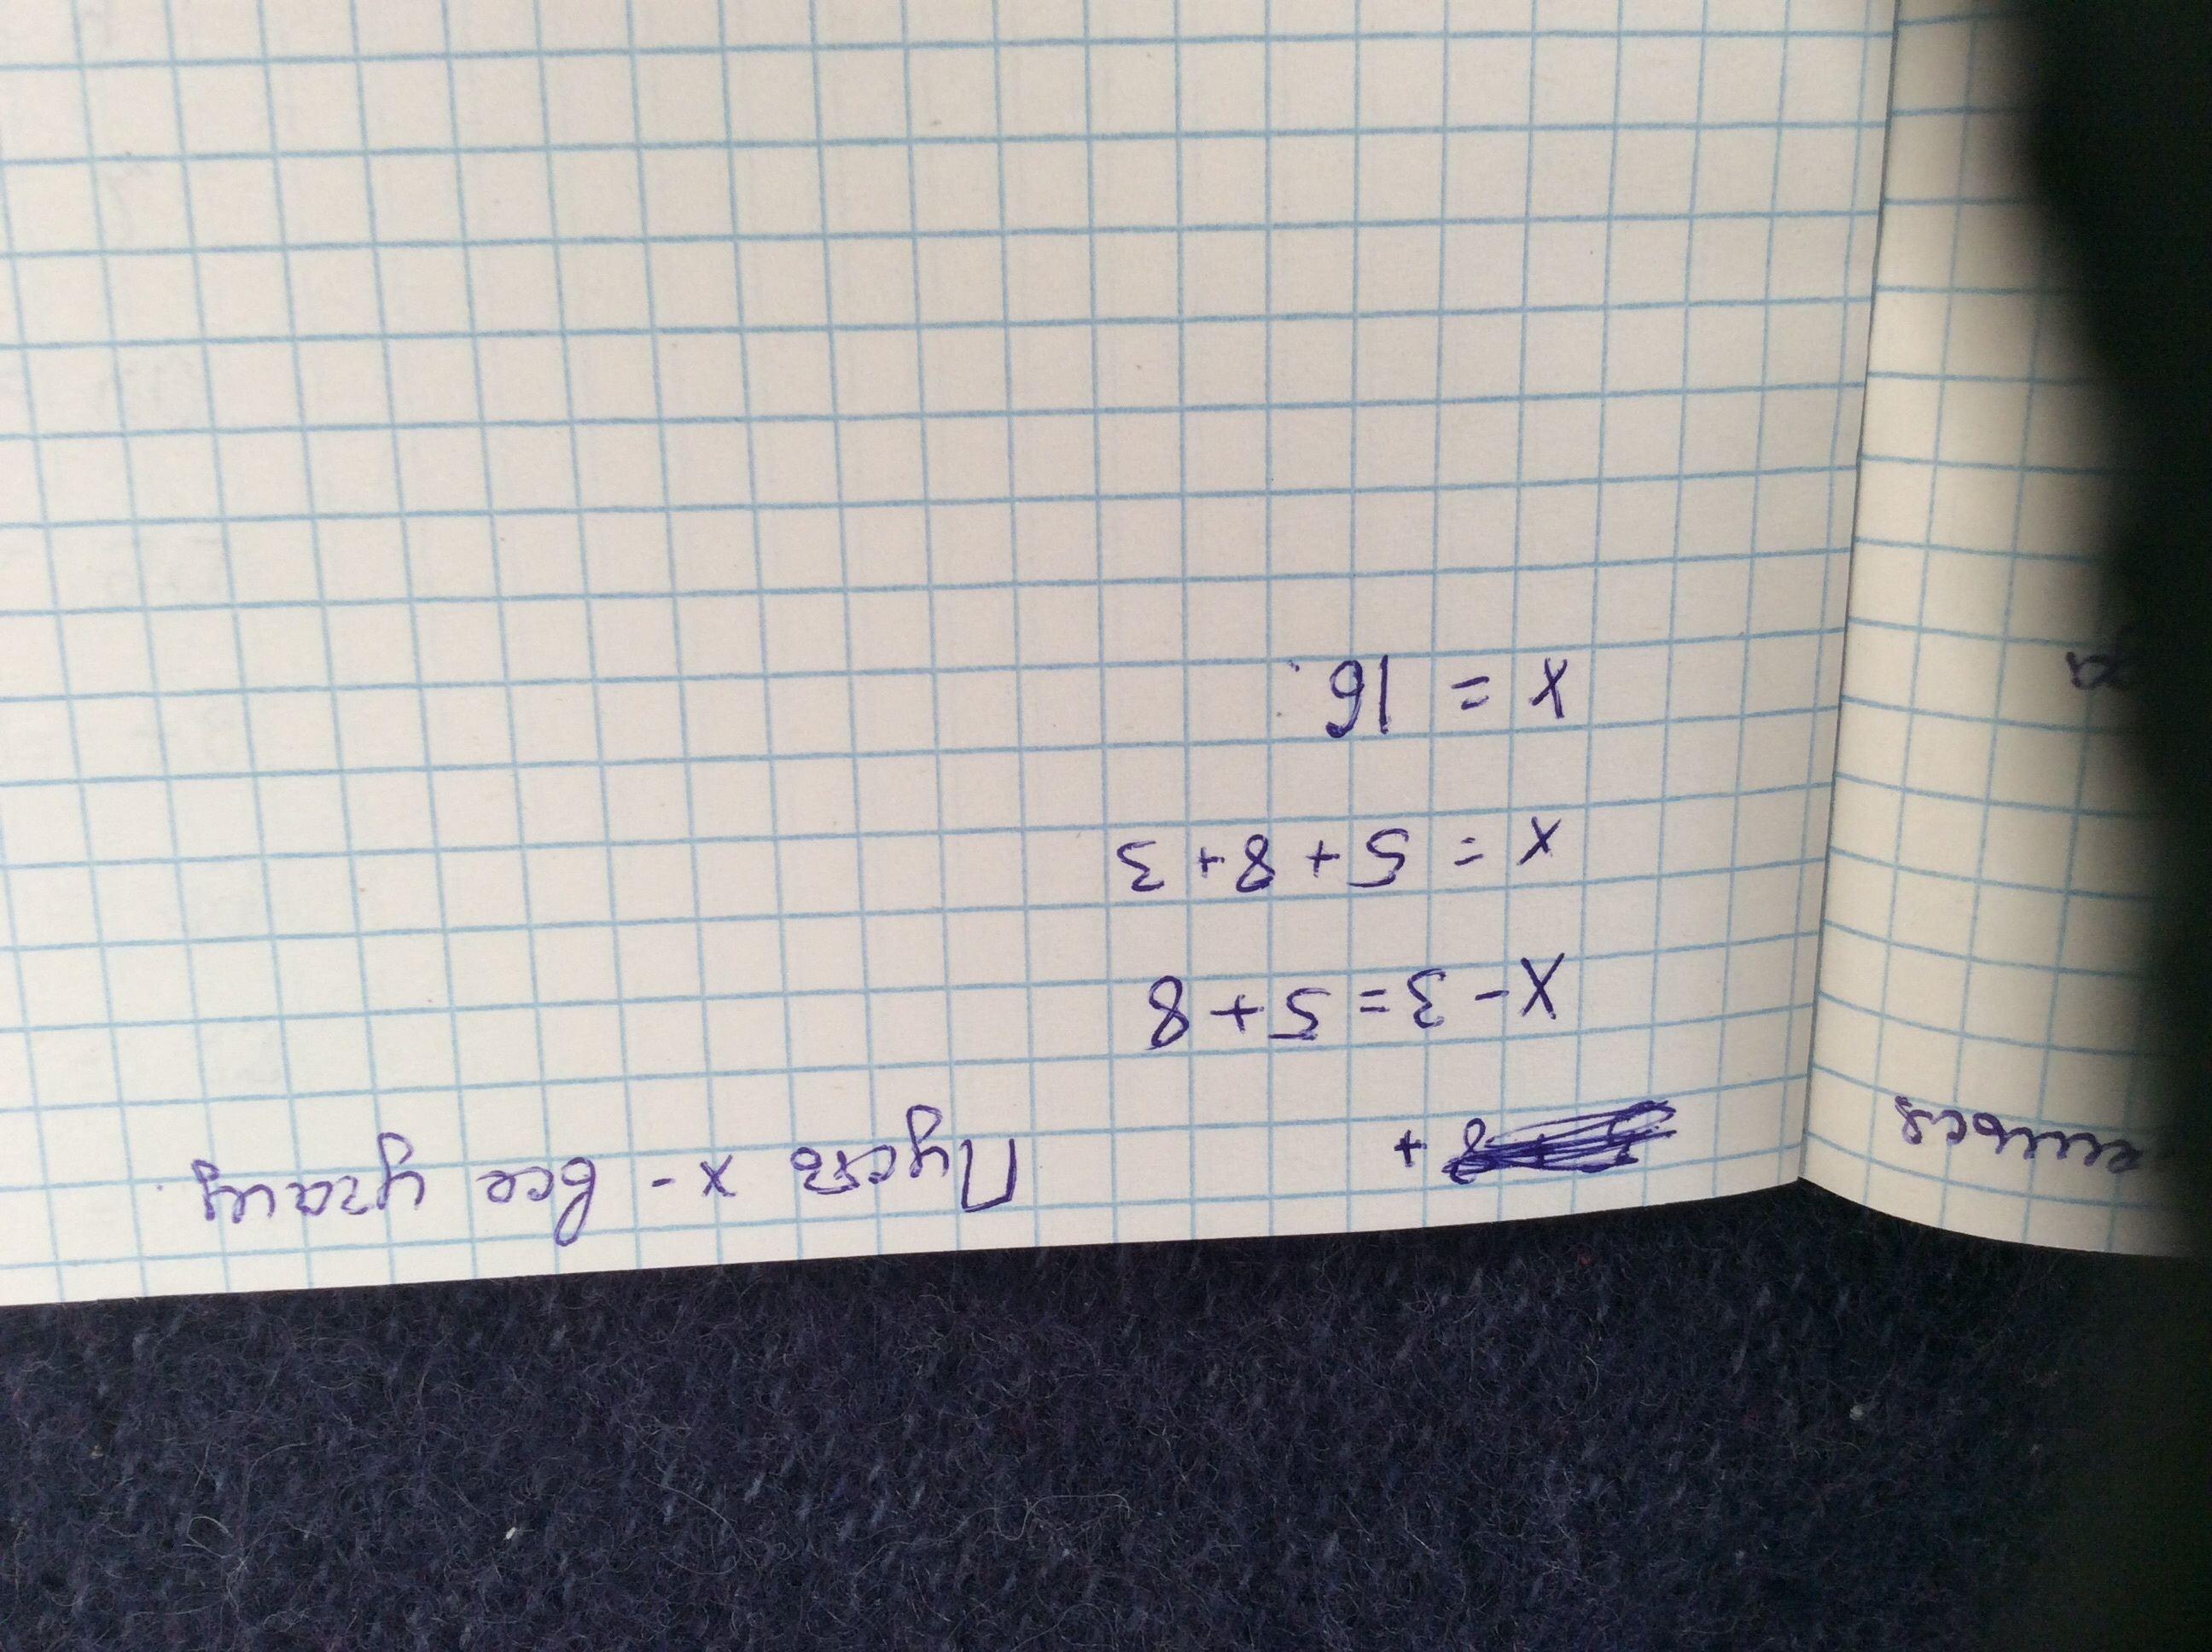 5 + 8 + Пусть x - все учащ.
x - 3 = 5 + 8
x = 5 + 8 + 3
x = 16.